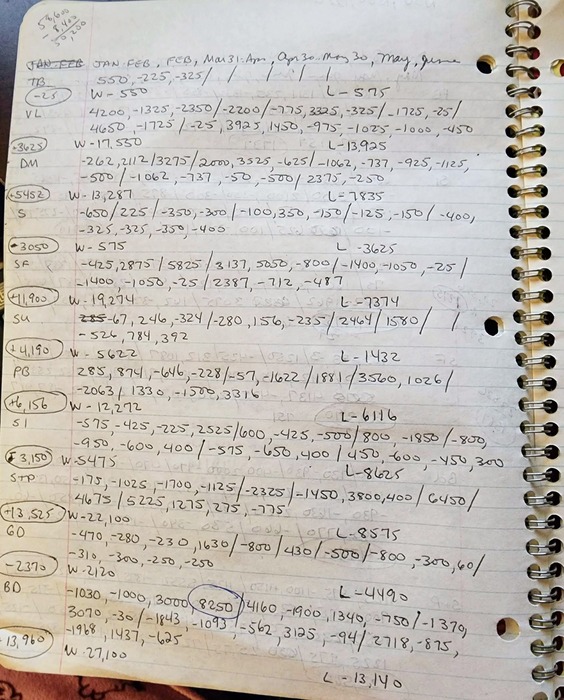 58,600
- 8,400
50,200
JAN FEB JAN FEB, FEB, Mar 31 Apr, Apr 30 May 30, May, June
TB 550, -225, -325/ / / / / /
-25 W- 550 L- 575
VL 4200, -1325, -2350/-2200/-775, 3325, -325/-1725, -25/
4650, -1725/-25, 3925, 1450, -975, -1025, -1000, -450
+3625 W- 17,550 L- 13,925
DM -262, 2112/3275/2000, 3525, -625/-1062, -737, -925, -1125,
-500/-1062, -737, -50, -500/2375, -250
+5452 W- 13,287 L- 7835
S -650/225/-350, -300/-100, 350, -150/-125, -150/-400,
-325, -325, -350, -400
-3050 W- 575 L- 3625
SF -425, 2875/5825/3137, 5050, -800/-1400, -1050, -25/
-1400, -1050, -25/2387, -712, -487
+11,900 W- 19,274 L- 7374
SU -67, 246, -324/-280, 156, -235/2464/1580/ /
-526, 784, 392
+4,190 W- 5622 L- 1432
PB 285, 874, -646, -228/-57, -1622/1881/3560, 1026/
-2063/1330, -1500, 3316
+6,156 W- 12,272 L- 6116
SI -575, -425, -225, 2525/600, -425, -500/800, -1850/-800,
-950, -600, 400/-575, -650, 400/450, -600, -450, 300
3,150 W- 5475 L- 8625
STP -175, -1025, -1700, -1125/-2325/-1450, 3800, 400/6450/
4675/5225, 1275, 275, -775
+13,525 W- 22,100 L- 8575
GO -470, -280, -230, 1630/-800/430/-500/-800, -300, 60/
-310, -300, -250, -250
-2370 W- 2120 L- 4490
BD -1030, -1000, 3000, 8250/4160, -1900, 1340, -750/-1370,
3070, -30/-1843, -1093, -562, 3125, -94/2718, -875,
-1968, 1437, -625
13,960 W- 27,100 L- 13,140